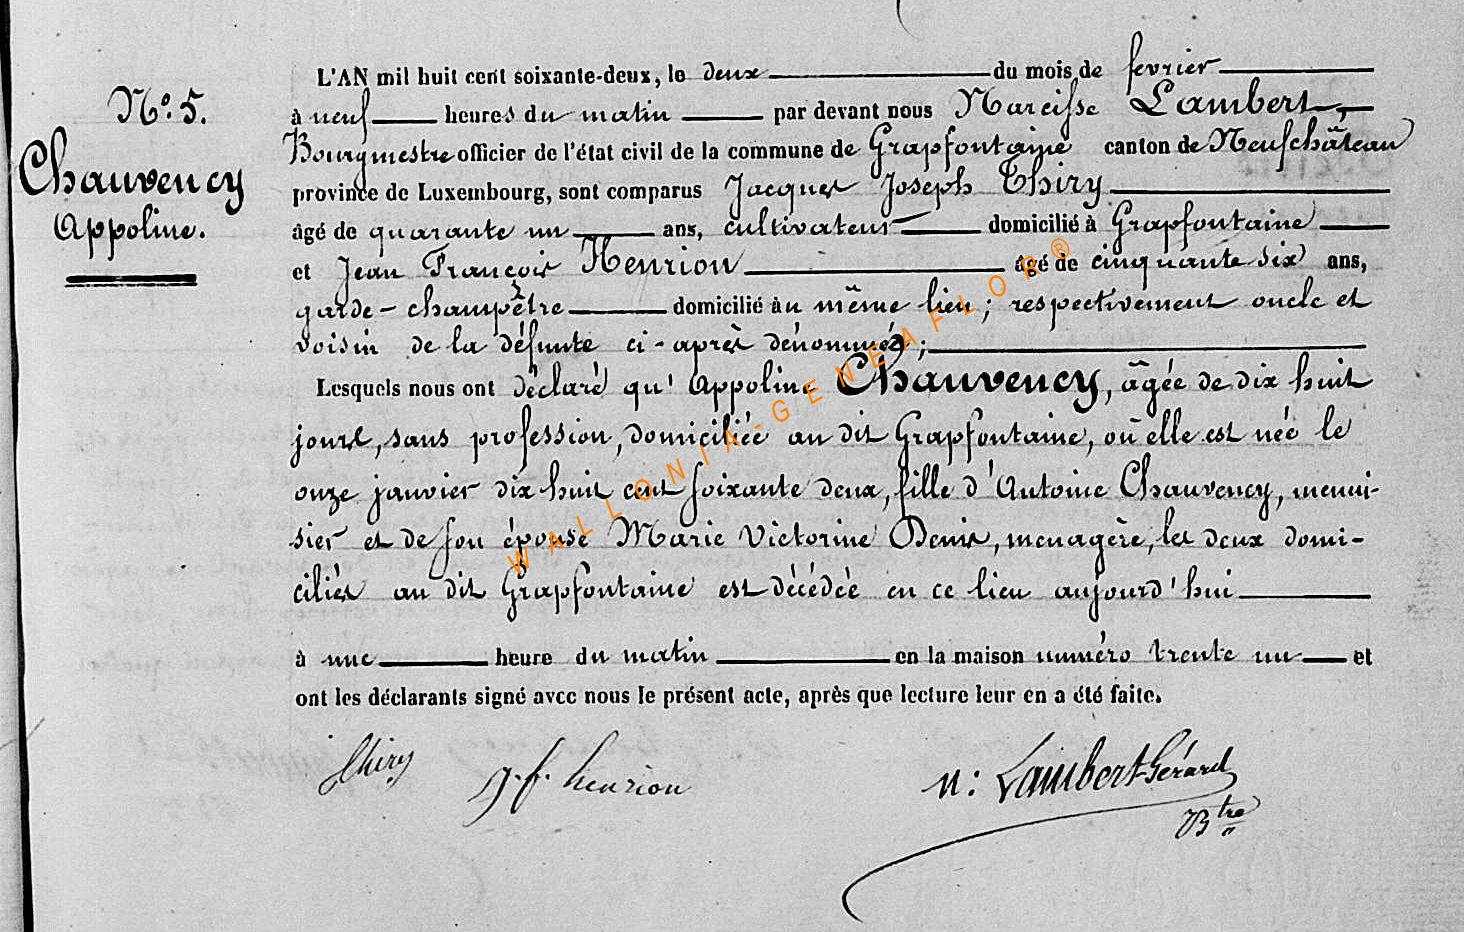 N.o 5.
Chauvency
Appoline.
L'AN mil huit cent soixante-deux, le deux du mois de fevrier
à neuf heures du matin par devant nous Narcisse Lambert,
Bourgmestre officier de l'état civil de la commune de Grapfontaine canton de Neufchâteau
province de Luxembourg, sont comparus Jacques Joseph Thiry
âgé de quarante un ans, cultivateur domicilié à Grapfontaine
et Jean François Henrion âgé de cinquante six ans,
garde-champêtre domicilié au même lieu; respectivement oncle et
voisin de la défunte ci-après dénommée;
Lesquels nous ont déclaré qu'Appoline Chauvency, âgée de dix huit
jours, sans profession, domiciliée au dit Grapfontaine, où elle est née le
onze janvier dix huit cent soixante deux, fille d'Antoine Chauvency, menui-
sier et de son épouse Marie Victorine Denis, menagère, les deux domi-
ciliés au dit Grapfontaine est décédée en ce lieu aujourd'hui
à une heure du matin en la maison numéro trente un et
ont les déclarants signé avec nous le présent acte, après que lecture leur en a été faite.
Thiry J. f. henrion N: Lambert-Gérard
Btre
WALLONIA-GENEAFLOR®